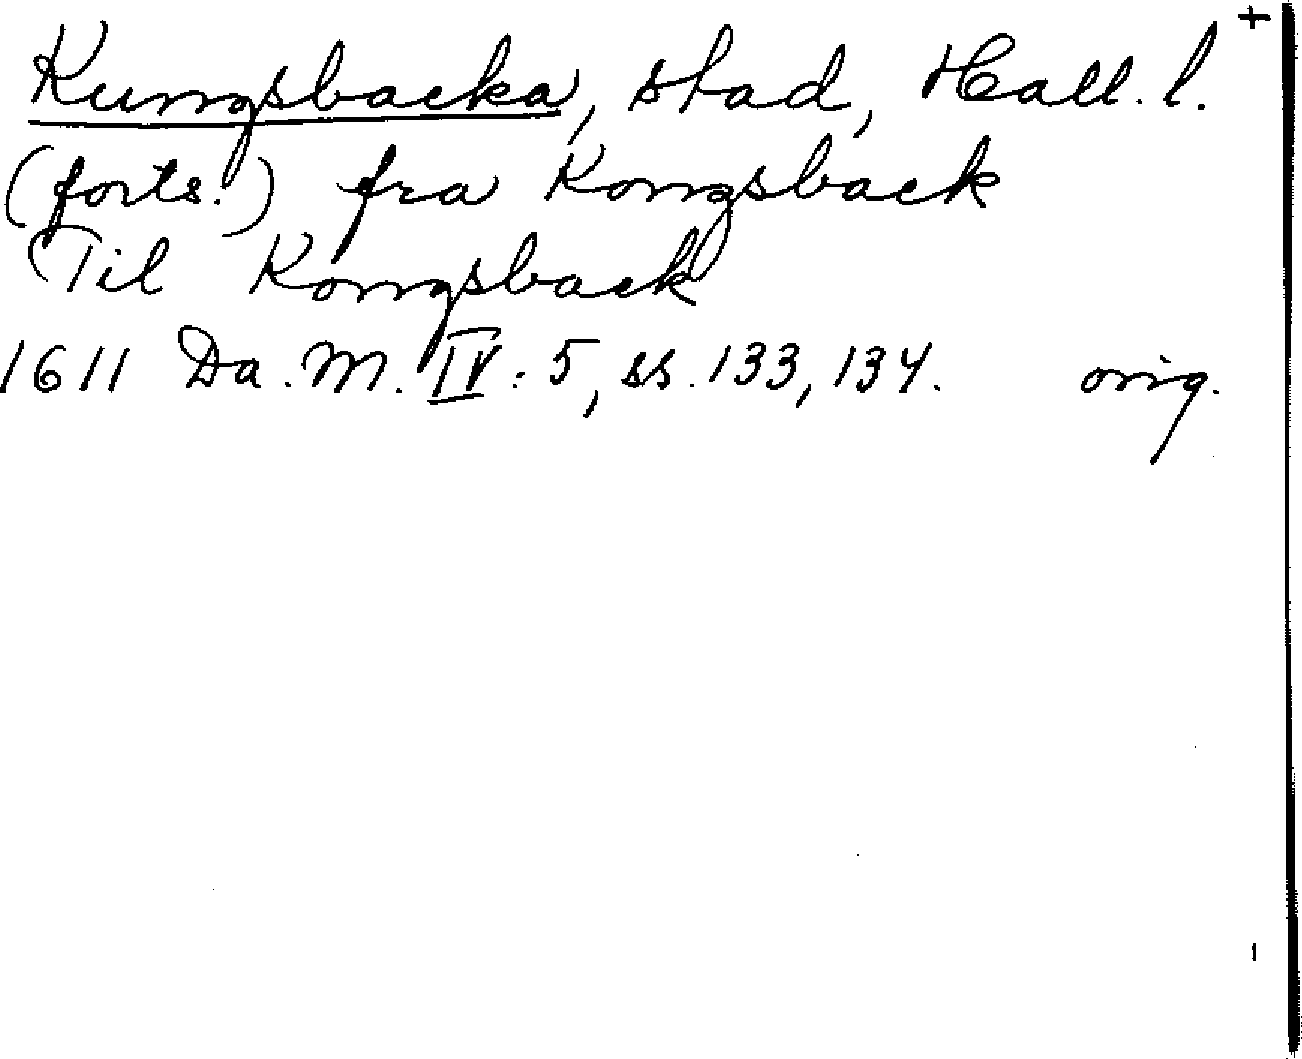 Kungsbacka, stad, Hall. l. +
(forts.) fra Kongsback
Til Kongsback
1611 Da. M. IV: 5, ss. 133, 134. orig.